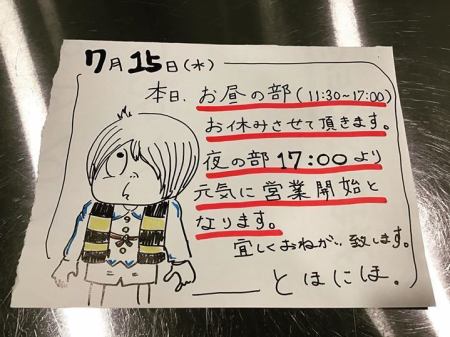 7月15日(水)
本日、お昼の部(11:30~17:00)
お休みさせて頂きます。
夜の部 17:00より
元気に営業開始と
なります。
宜しくおねがい致します。
とほにほ。